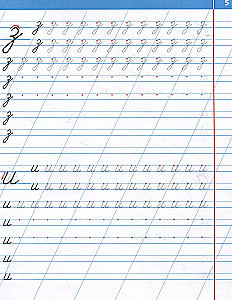 5
з з з з з з з з з з з з з
з з з з з з з з з з з з
з з з з з з з з з з з з з з
з
з
з
з
и и и и и и и и и и и и и
и и и и и и и и и и и и
и и и и и и и и и и и и и
и
и
и
и